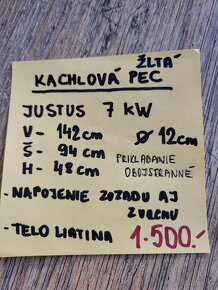 ŽLTÁ
KACHLOVÁ PEC
JUSTUS 7 kW
V- 142cm ø 12cm
Š- 94cm PRIKLADANIE
H- 48cm OBOJSTRANNÉ
-NAPOJENIE ZOZADU AJ
ZVRCHU
-TELO LIATINA 1.500.-